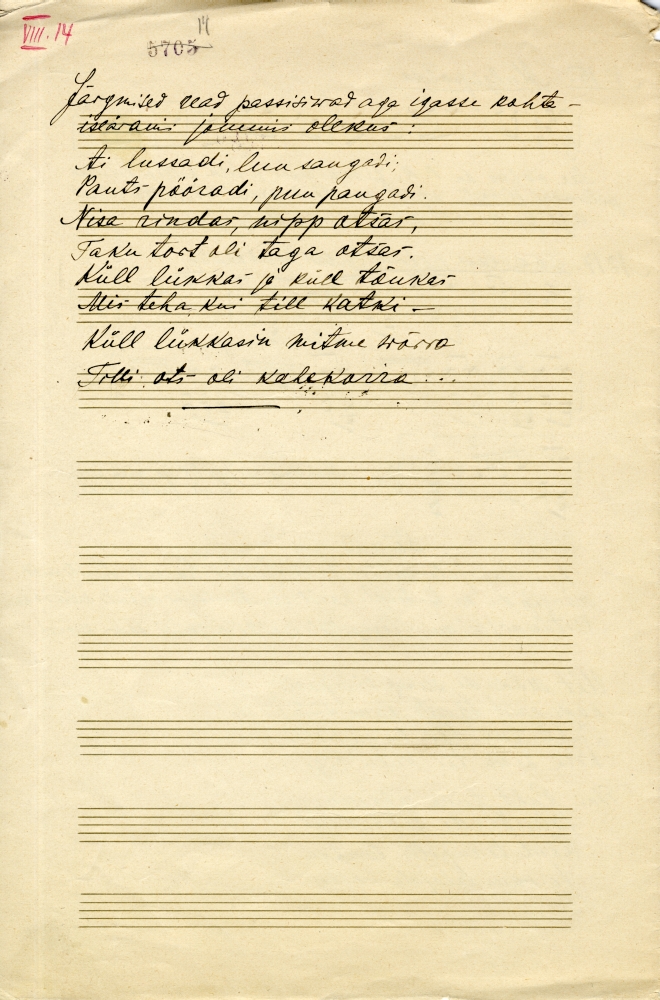 VIII. 14
14
5705
Järgmised read passisiwad aga igasse kohta –
iseäranis jounis olekus:
Ai lussadi, luu sangadi;
Pauts pööradi, puu pangadi.
Nisa rindas, nipp otsas,
Taku tort oli taga otsas.
Küll lükkas ja küll tõukas
Mis teha, kui till katki –
Küll lükkasin mitme wõrra
Tilli ots oli kahekorra ...